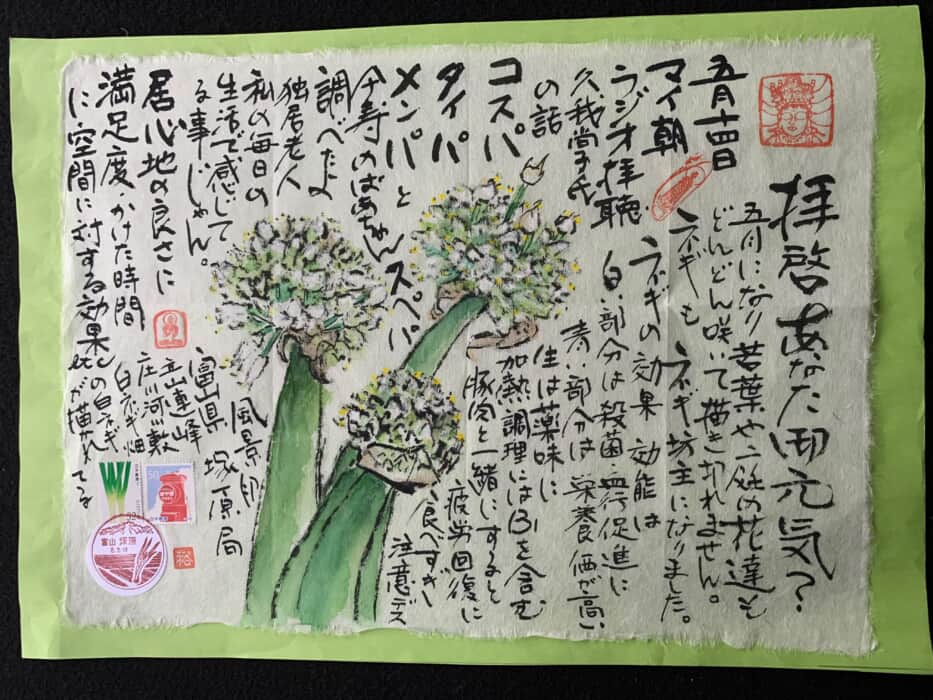 拝啓あなた御元気？
五月になり若葉や庭の花達も
どんどん咲いて描き切れません。
ネギも ネギ坊主になりました。
ネギの効果 効能は
白い部分は殺菌・血行促進に
青い部分は栄養価が高い
生は薬味に
加熱調理にはB1を含む
豚肉と一緒にすると
疲労回復に
食べすぎ
注意デス
五月十四日
マイ朝
ラジオ拝聴
久我尚子氏
の話
コスパ
タイパ
メンパと スペパ
伊寿のばあちゃん
調べたよ
独居老人
私の毎日の
生活で感じて
る事じゃん。
居心地の良さに
満足度・かけた時間
に空間に対する効果etc
風景印
富山県 塚原局
立山連峰
庄川河川敷
白ネギ畑
の白ネギ
が描れてる
50
富山 塚原
6.5.14
裕